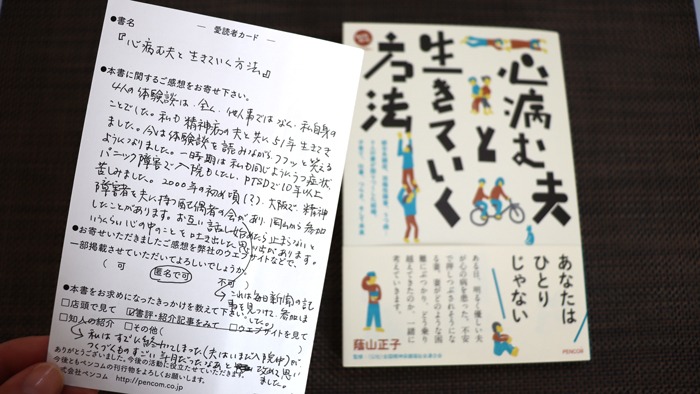 愛読者カード
●書名
『心病む夫と生きていく方法』
●本書に関するご感想をお寄せ下さい。
4人の体験談は、全く、他人事ではなく、私自身の
ことでした。私も精神病の夫と共に51年生きてき
ました。今は体験談を読みながらフフッと笑える
ようになりました。一時期は私も同じようにうつ症状、
パニック障害で入院もしたし、PTSDで10年以上
苦しみました。2000年の初め頃(?)、大阪で、精神
障害者を夫に持つ配偶者の会があり、岡山から参加
したことがあります。お互い話し始めたら止まらないと
いうくらい心の中のことを吐き出した思い出があります。
●お寄せいただきましたご感想を弊社のウェブサイトなどで、
一部掲載させていただいてよろしいでしょうか。
( 可 匿名で可 不可 )
→これは毎日新聞の記
事を見つけて、参加
しました。)
●本書をお求めになったきっかけを教えて下さい。
□店頭で見て ☑書評・紹介記事をみて □ウェブサイトを見て
□知人の紹介 □その他( )
→私はすでに
つくづくものすごい年月だったなあと 改めて思い
ました。
ありがとうございました。今後の活動に役立たせていただきます。
今後ともペンコムの刊行物をよろしくお願いします。
株式会社ペンコム http://pencom.co.jp
心病む夫
と
生きていく
方法
あなたは
ひとり
じゃない
ある日、明るく優しい夫
が心の病を患った。不安
で押しつぶされそうにな
る妻。妻がどのような困
難にぶつかり、どう乗り
越えてきたのか、一緒に
考えていきます。
蔭山正子
PENCOM